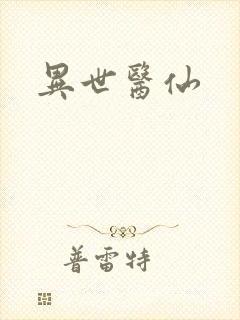 異世醫仙
普雷特